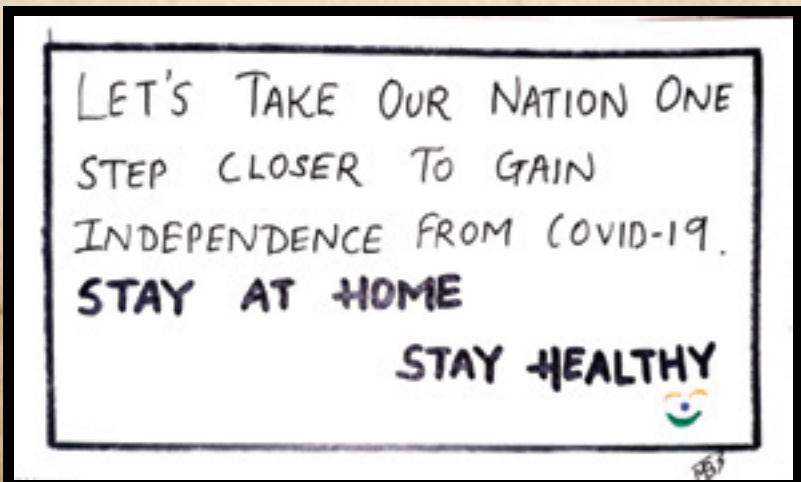 LET'S TAKE OUR NATION ONE
STEP CLOSER TO GAIN
INDEPENDENCE FROM COVID-19.
STAY AT HOME
STAY HEALTHY